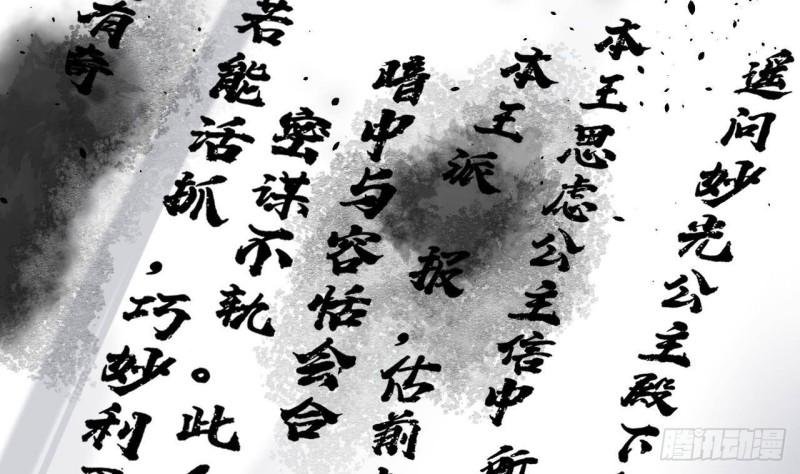 遥问妙光公主殿下
本王思虑公主信中所
本王派 报，估前
暗中与容恬会合
密谋不轨。此
若能活抓，巧妙利
有奇
腾讯动漫